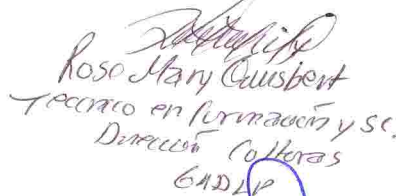 Rose Mary Quisbert
Tecnico en formación y SC.
Dirección Culturas
GADLP